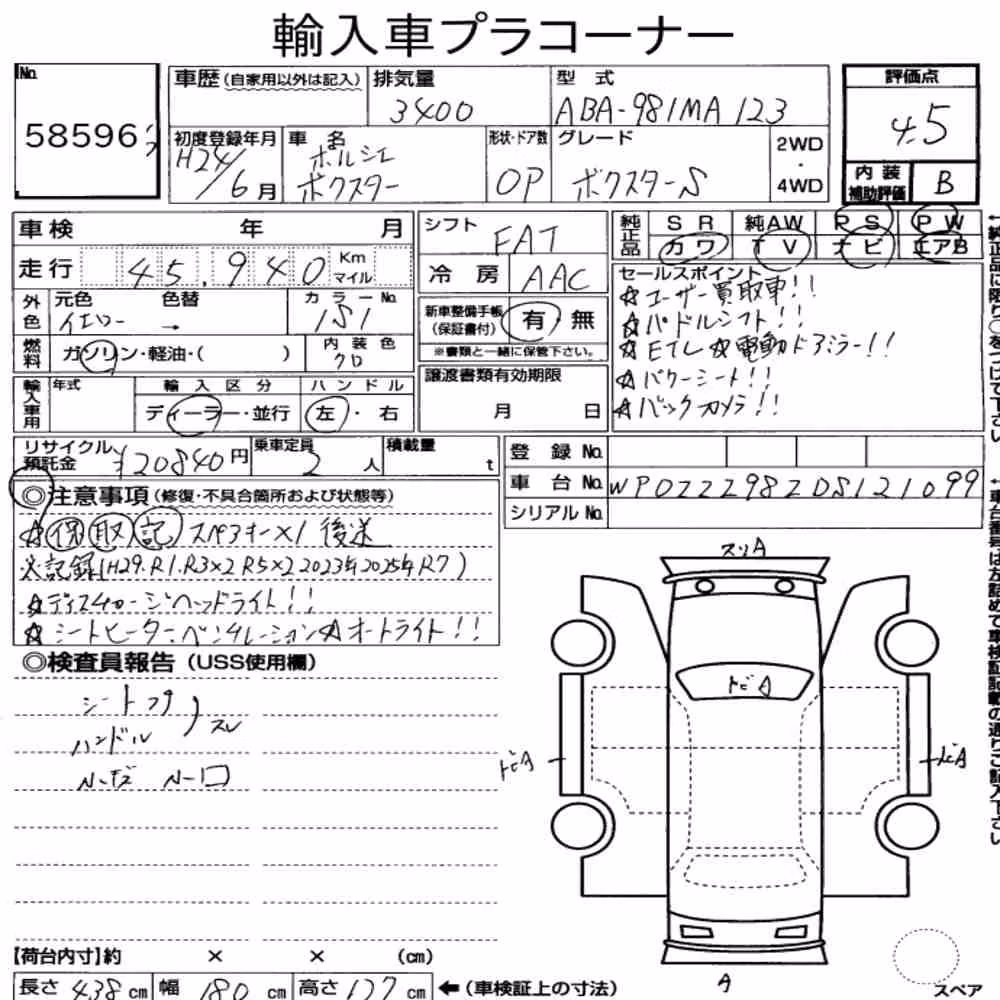 輸入車プラコーナー
No. 58596
車歴 (自家用以外は記入) 排気量 3400 型式 ABA-981MA123
評価点 4.5
初度登録年月 H24/6月 車名 ポルシェ ボクスター 形状・ドア数 OP グレード ボクスターS 2WD・4WD
内装補助評価 B
車検 年 月 シフト FAT
純正品 SR 純AW PS PW
カワ TV ナビ エアB
走行 45,940 Km マイル 冷房 AAC
外色 元色 イエロー 色替 → カラーNo. 1S1
新車整備手帳 (保証書付) 有 無
※書類と一緒に保管下さい。
燃料 ガソリン・軽油・( ) 内装色 クロ
譲渡書類有効期限 月 日
輸入車用 年式 輸入区分 ディーラー・並行 ハンドル 左・右
セールスポイント
☆ユーザー買取車!!
☆パドルシフト!!
☆ETC ☆電動ドアミラー!!
☆パワーシート!!
☆バックカメラ!!
リサイクル預託金 ¥20840円 乗車定員 2人 積載量 t
登録No.
車台No. WP0ZZZ98ZDS121099
シリアルNo.
◎注意事項 (修復・不具合箇所および状態等)
☆保取記 スペアキー×1 後送
※記録(H29.R1.R3×2 R5×2 2023年2025年R7)
☆ディスチャージヘッドライト!!
☆シートヒーター・ベンチレーション☆オートライト!!
◎検査員報告 (USS使用欄)
シート
ハンドル スレ
スリA
トビA
トビA
トビA
A
スペア
【荷台内寸】約 × × (cm)
長さ 438cm 幅 180cm 高さ 127cm ←(車検証上の寸法)
↑純正品に限り○をつけて下さい
↑車台番号は左詰めで車検証記載の通りご記入下さい